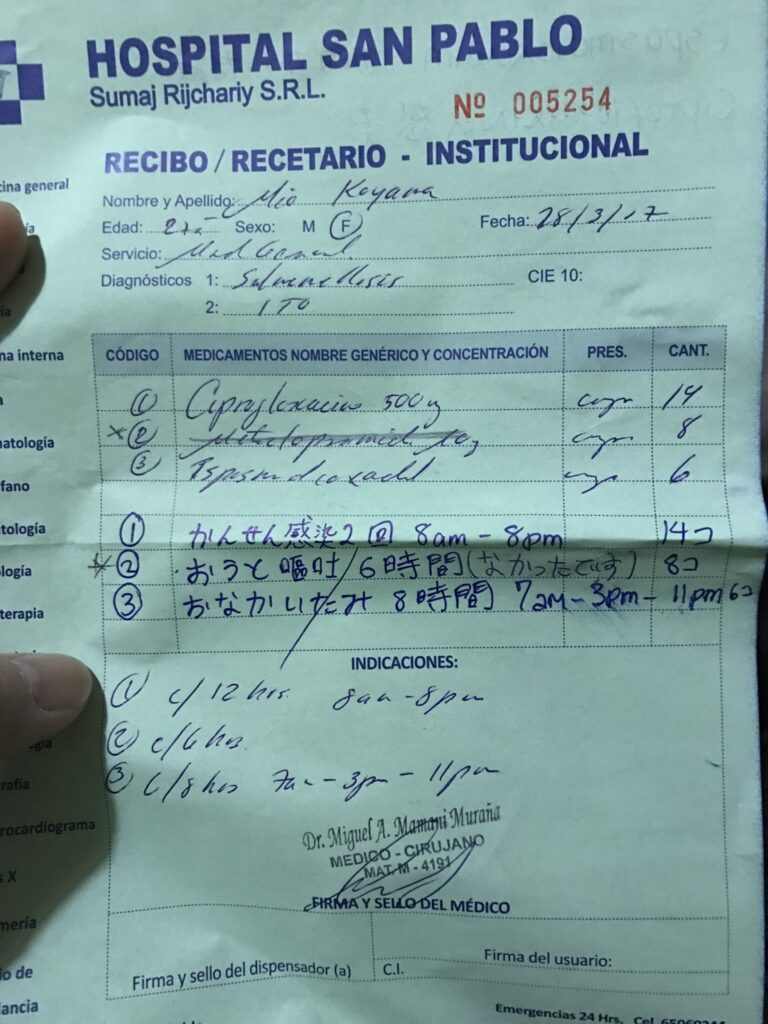 HOSPITAL SAN PABLO
Sumaj Rijchariy S.R.L.
Nº 005254
RECIBO / RECETARIO - INSTITUCIONAL
cina general
Nombre y Apellido: Mio Koyama
Edad: 27a Sexo: M F Fecha: 28/3/17
Servicio: Med General
Diagnósticos 1: Salmonellosis CIE 10:
2: ITO
na interna
CÓDIGO MEDICAMENTOS NOMBRE GENÉRICO Y CONCENTRACIÓN PRES. CANT.
① Ciprofloxacino 500 14
natología
x② Metoclopramida 10 8
fano
③ 6
tología
① かんせん感染2回 8am - 8pm 14コ
ología
x② おうと嘔吐/6時間(なかったです) 8コ
③ おなかいたみ 8時間 7am - 3pm - 11pm 6コ
oterapia
INDICACIONES:
① c/12 hrs. 8am - 8pm
② c/6 hrs.
③ c/8 hrs 7am - 3pm - 11pm
rafía
rocardiograma
Dr. Miguel A. Mamani Muraña
MEDICO - CIRUJANO
s X
MAT. M - 4191
FIRMA Y SELLO DEL MÉDICO
mería
io de
lancia
Firma y sello del dispensador (a) C.I. Firma del usuario:
Emergencias 24 Hrs. Cel.